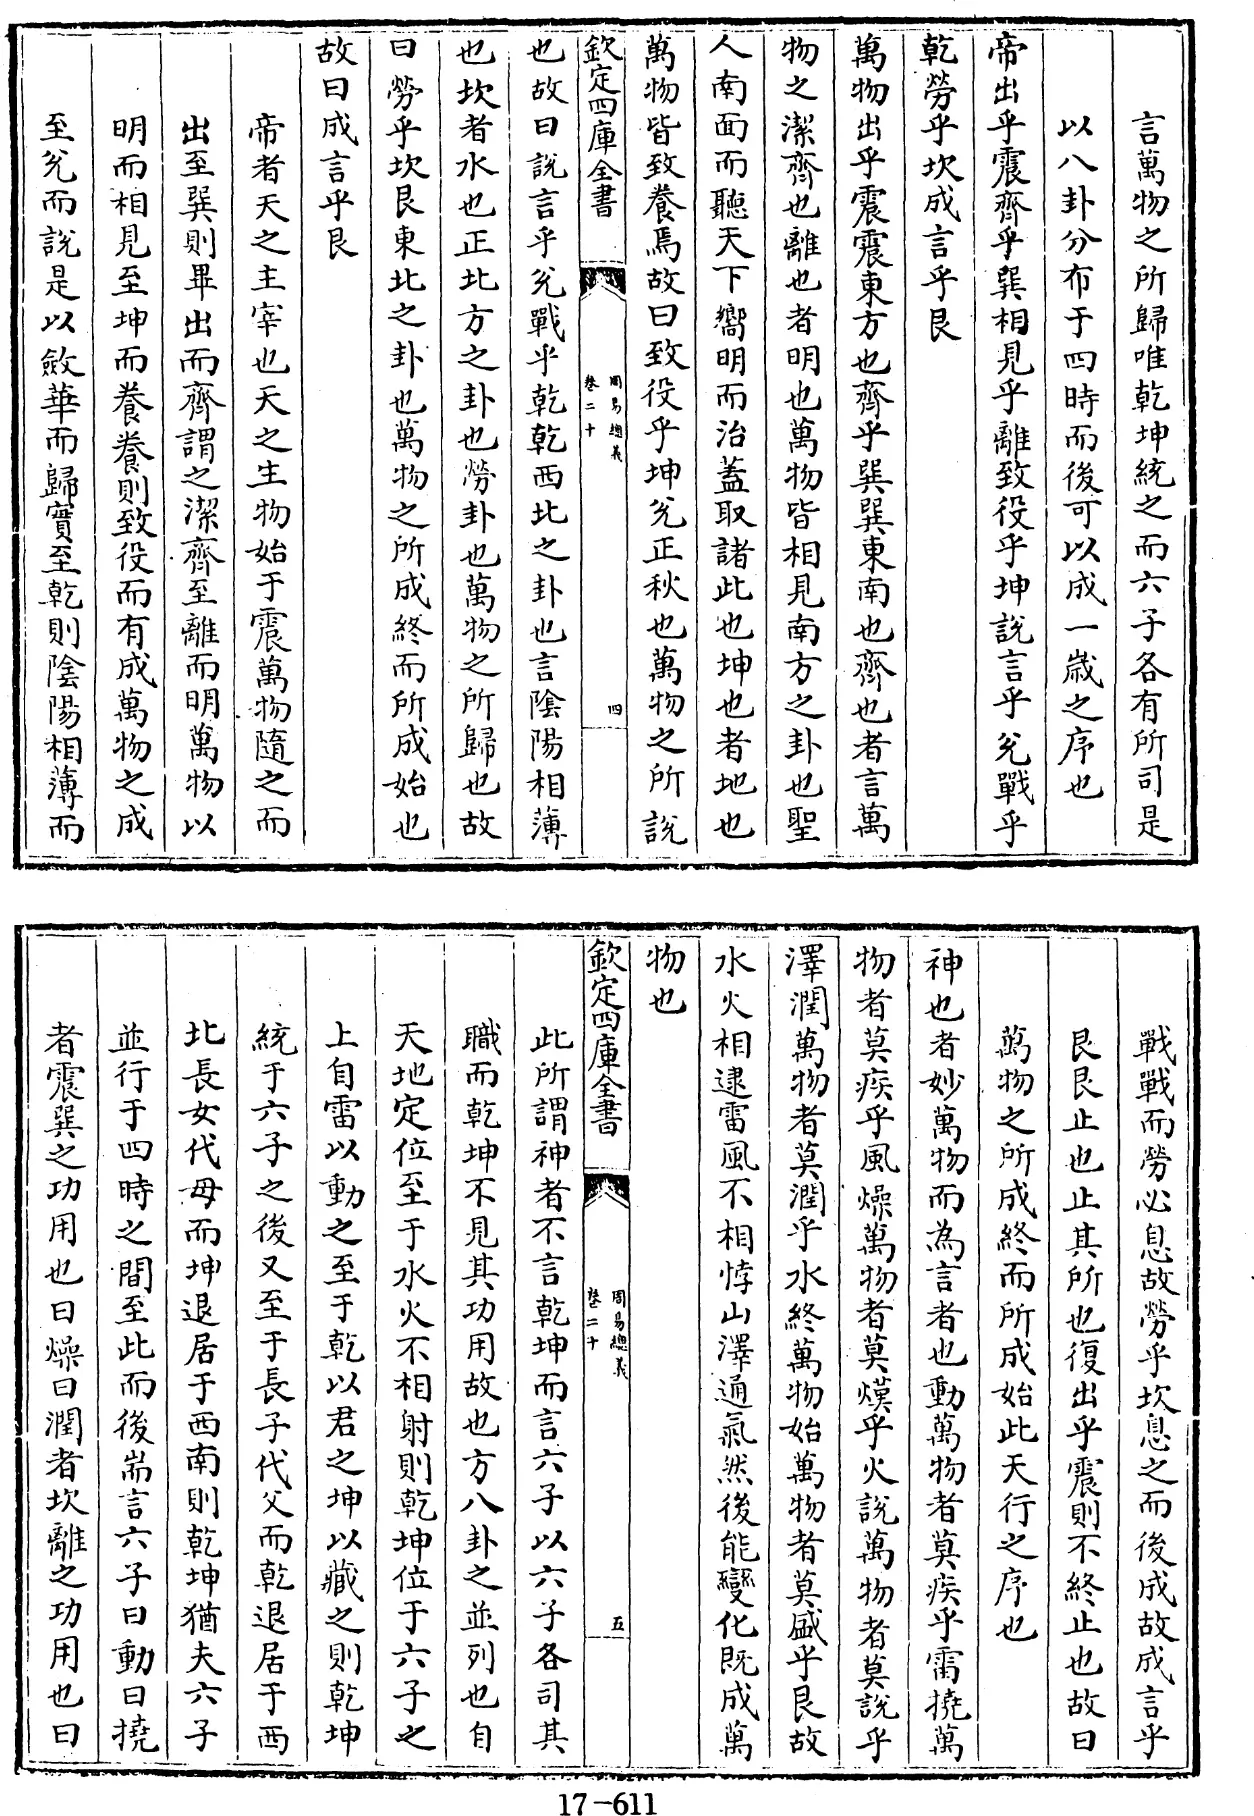 言萬物之所歸唯乾坤統之而六子各有所司是
以八卦分布于四時而後可以成一歲之序也
帝出乎震齊乎巽相見乎離致役乎坤説言乎兊戰乎
乾勞乎坎成言乎艮
萬物出乎震震東方也齊乎巽巽東南也齊也者言萬
物之潔齊也離也者明也萬物皆相見南方之卦也聖
人南面而聽天下嚮明而治蓋取諸此也坤也者地也
萬物皆致養焉故曰致役乎坤兊正秋也萬物之所說
欽定四庫全書
周易總義
卷二十
四
也故曰説言乎兊戰乎乾乾西北之卦也言陰陽相薄
也坎者水也正北方之卦也勞卦也萬物之所歸也故
曰勞乎坎艮東北之卦也萬物之所成終而所成始也
故曰成言乎艮
帝者天之主宰也天之生物始于震萬物隨之而
出至巽則畢出而齊謂之潔齊至離而明萬物以
明而相見至坤而養養則致役而有成萬物之成
至兊而說是以斂華而歸實至乾則陰陽相薄而
戰戰而勞必息故勞乎坎息之而後成故成言乎
艮艮止也止其所也復出乎震則不終止也故曰
萬物之所成終而所成始此天行之序也
神也者妙萬物而為言者也動萬物者莫疾乎雷撓萬
物者莫疾乎風燥萬物者莫熯乎火說萬物者莫說乎
澤潤萬物者莫潤乎水終萬物始萬物者莫盛乎艮故
水火相逮雷風不相悖山澤通氣然後能變化既成萬
物也
欽定四庫全書
周易總義
卷二十
五
此所謂神者不言乾坤而言六子以六子各司其
職而乾坤不見其功用故也方八卦之並列也自
天地定位至于水火不相射則乾坤位于六子之
上自雷以動之至于乾以君之坤以藏之則乾坤
統于六子之後又至于長子代父而乾退居于西
北長女代母而坤退居于西南則乾坤猶夫六子
並行于四時之間至此而後耑言六子曰動曰撓
者震巽之功用也曰燥曰潤者坎離之功用也曰
17-611